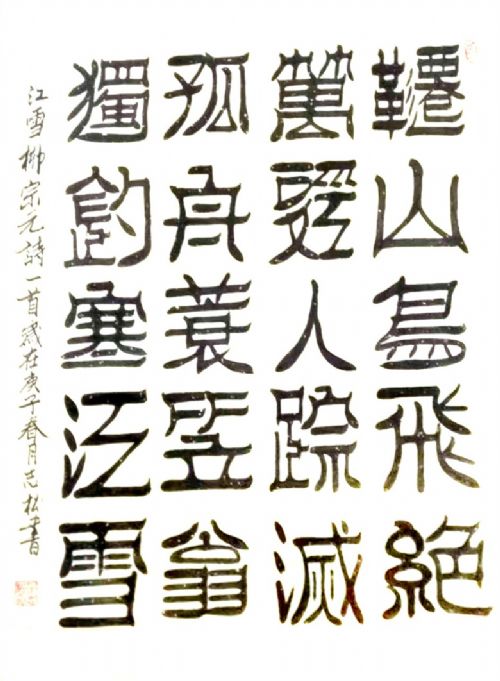 韆山鳥飛絕
萬徑人踪滅
孤舟蓑笠翁
獨釣寒江雪
江雪柳宗元詩一首歲在庚子春月志松書